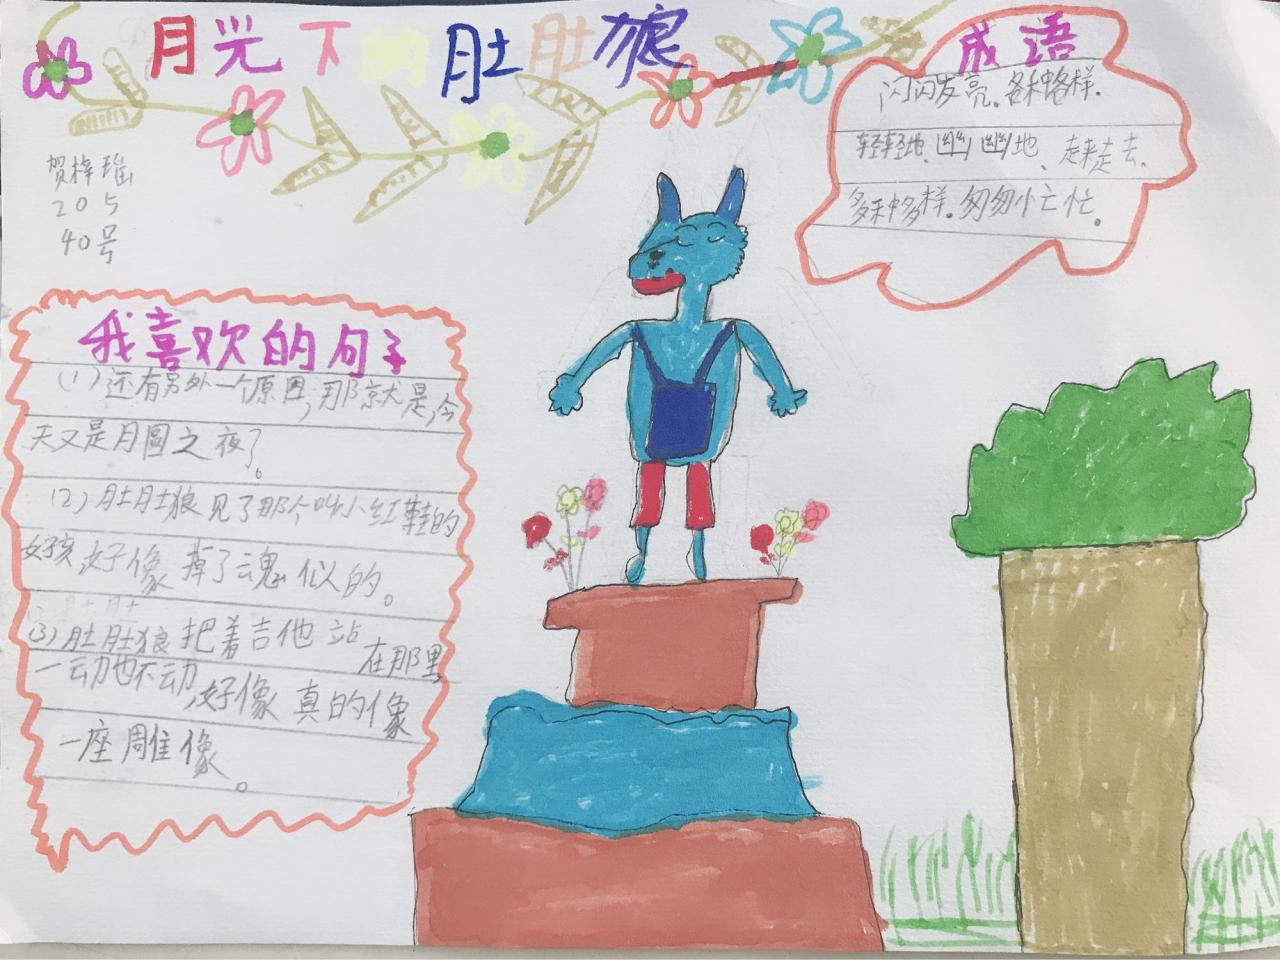 月光下的肚肚狼
贺梓瑶
205
40号
成语
闪闪发亮。各种各样。
轻轻地、幽幽地、走来走去、
多种多样。匆匆忙忙。
我喜欢的句子
(1)还有另外一个原因,那就是,今
天又是月圆之夜了。
(2)肚肚狼见了那个叫小红鞋的
女孩好像掉了魂似的。
(3)肚肚狼把着吉他站在那里
一动也不动,好像真的像
一座雕像。